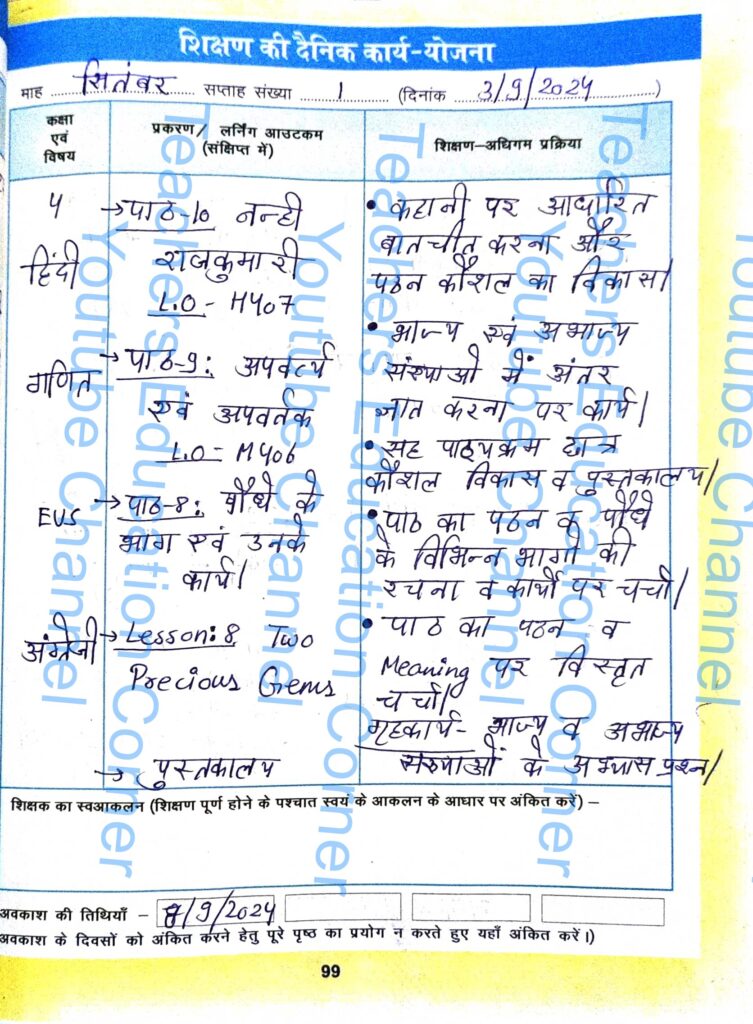 शिक्षण की दैनिक कार्य-योजना
माह सितंबर सप्ताह संख्या 1 (दिनांक 3/9/2024)
कक्षा एवं विषय
प्रकरण/ लर्निंग आउटकम (संक्षिप्त में)
शिक्षण-अधिगम प्रक्रिया
५
हिंदी
→ पाठ-10 नन्ही
राजकुमारी
L.O - H407
• कहानी पर आधारित
बातचीत करना और
पठन कौशल का विकास।
गणित
→ पाठ-9: अपवर्त्य
एवं अपवर्तक
L.O - M406
• भाज्य एवं अभाज्य
संख्याओं में अंतर
ज्ञात करना पर कार्य।
• सह पाठ्यक्रम छात्र
कौशल विकास व पुस्तकालय।
EVS
→ पाठ-8: पौधे के
भाग एवं उनके
कार्य।
• पाठ का पठन व पौधे
के विभिन्न भागों की
रचना व कार्यों पर चर्चा।
अंग्रेजी
→ Lesson: 8 Two
Precious Gems
• पाठ का पठन व
Meaning पर विस्तृत
चर्चा।
→ पुस्तकालय
गृहकार्य- भाज्य व अभाज्य
संख्याओं के अभ्यास प्रश्न।
शिक्षक का स्वआकलन (शिक्षण पूर्ण होने के पश्चात स्वयं के आकलन के आधार पर अंकित करें) –
अवकाश की तिथियाँ – 8/9/2024
अवकाश के दिवसों को अंकित करने हेतु पूरे पृष्ठ का प्रयोग न करते हुए यहाँ अंकित करें।)
99
Teachers Education Corner
Youtube Channel
Teachers Education Corner
Youtube Channel
Teachers Education Corner
Youtube Channel